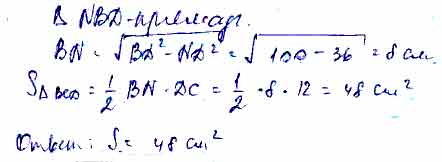 Δ NBD - прямоуг.
BN = √BD² - ND² = √100 - 36 = 8 см
S Δ BCD = 1/2 BN · DC = 1/2 · 8 · 12 = 48 см²
Ответ: S = 48 см²